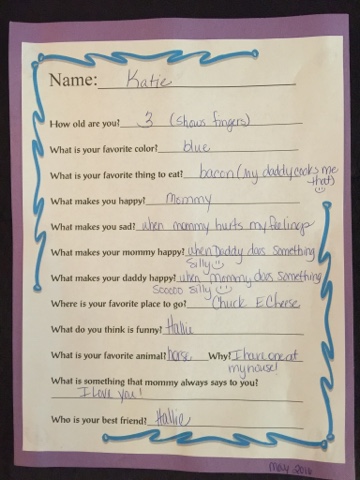 Name: Katie
How old are you? 3 (shows fingers)
What is your favorite color? blue
What is your favorite thing to eat? bacon (my daddy cooks me
that)
What makes you happy? Mommy
What makes you sad? when mommy hurts my feelings
What makes your mommy happy? when Daddy does something
silly
What makes your daddy happy? when Mommy does something
Sooooo silly
Where is your favorite place to go? Chuck E Cheese
What do you think is funny? Hallie
What is your favorite animal? horse Why? I have one at
my house!
What is something that mommy always says to you?
I love you!
Who is your best friend? Hallie
May